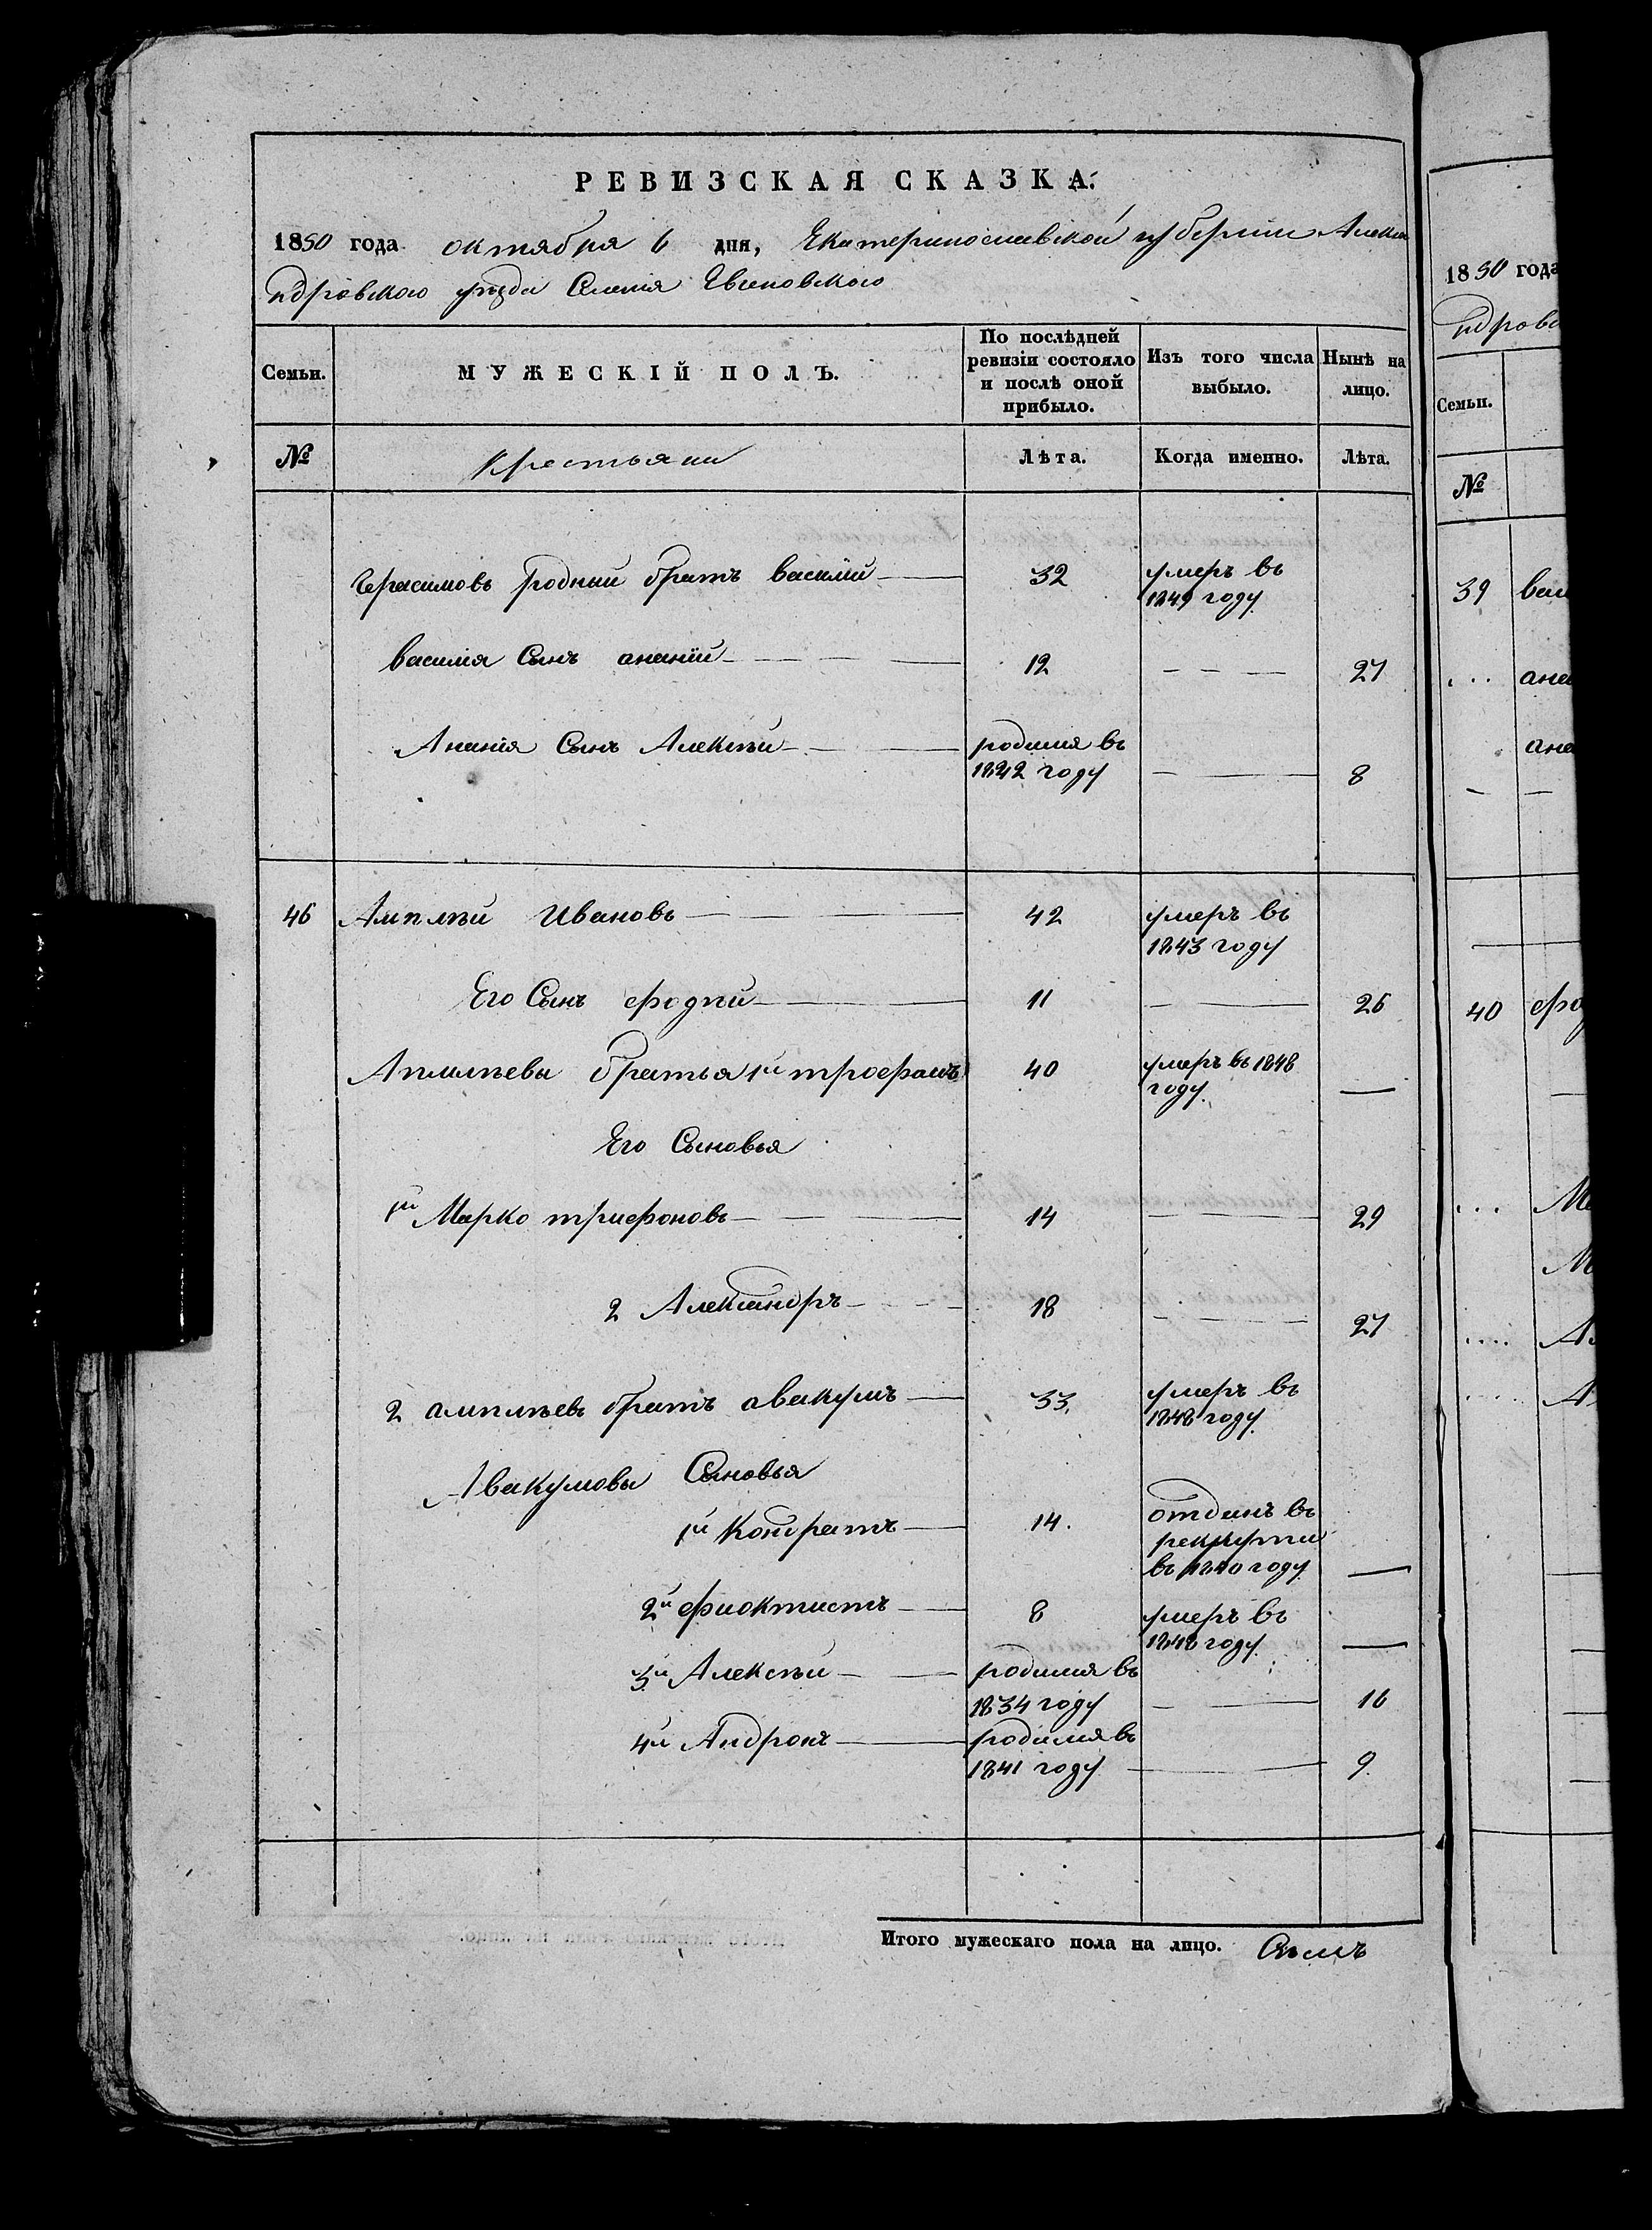 РЕВИЗСКАЯ СКАЗКА.
1850 года октября 6 дня, Екатеринославской губернии Алекса
ндровского уезда Селенія
Семьи. МУЖЕСКІЙ ПОЛЪ. По послѣдней ревизіи состояло и послѣ оной прибыло. Изъ того числа выбыло. Нынѣ на лицо.
№ Крестьяни Лѣта. Когда именно. Лѣта.
Герасимовъ родный братъ василій 32 умеръ въ
1849 году
василія Сынъ ананій 12 27
Ананія Сынъ Алексѣй родился въ
1842 году 8
46 Амплѣй Ивановъ 42 умеръ въ
1843 году
Его Сынъ фодѣй 11 26
братья 1й трофимъ 40 умеръ въ 1848
году
Его Сыновья
1й Марко трифоновъ 14 29
2 Александръ 18 27
2 амплѣевъ братъ авакумъ 33. умеръ въ
1848 году
Авакумовы Сыновья
1й Кондратъ 14. отданъ въ
рекруты
въ 1840 году
2й фиоктистъ 8 умеръ въ
1848 году
3й Алексѣй родился въ
1834 году 16
4й Андронъ родился въ
1841 году 9.
Итого мужескаго пола на лицо. Семъ
1850 года
ндровс
Семьи.
№
39 васи
ана
ана
40 фод
Ма
М
Ал
А